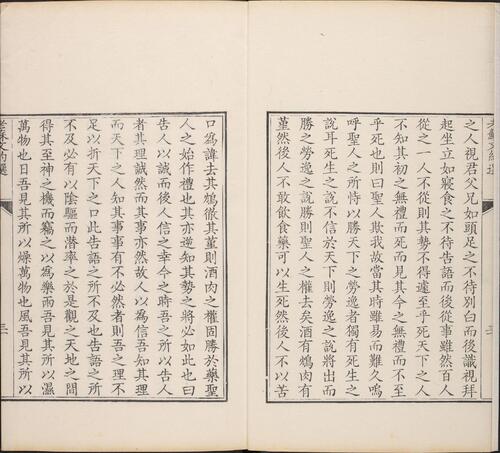 之人視君父兄如頭足之不待別白而後識視拜
起坐立如寢食之不待告語而後從事雖然百人
從之一人不從則其勢不得遽至乎死天下之人
不知其初之無禮而死而見其今之無禮而不至
乎死也則曰聖人欺我故當其時雖易而難久嗚
呼聖人之所恃以勝天下之勞逸者獨有死生之
說耳死生之說不信於天下則勞逸之說將出而
勝之勞逸之說勝則聖人之權去矣酒有鴆肉有
堇然後人不敢飲食藥可以生死然後人不以苦
口為諱去其鴆徹其堇則酒肉之權固勝於藥聖
人之始作禮也其亦逆知其勢之將必如此也曰
告人以誠而後人信之幸今之時吾之所以告人
者其理誠然而其事亦然故人以為信吾知其理
而天下之人知其事事有不必然者則吾之理不
足以折天下之口此告語之所不及也告語之所
不及必有以陰驅而潛率之於是觀之天地之間
得其至神之機而竊之以為樂雨吾見其所以濕
萬物也日吾見其所以燥萬物也風吾見其所以
三